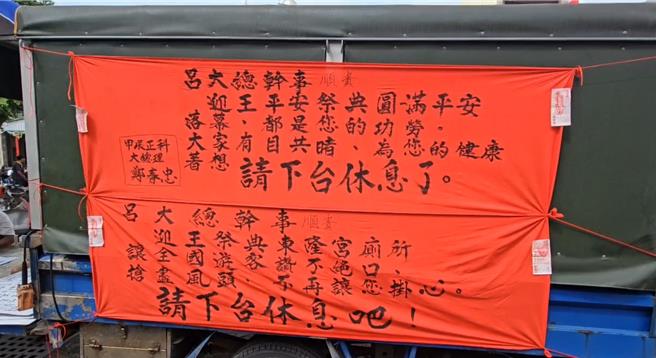 呂大總幹事 順貴
迎王平安祭典圓滿平安
落幕都是您的功勞。
大家有目共睹、為您的健康
著想
請下台休息了。
甲辰正科
大總理
鄭春忠
呂大總幹事 順貴
迎王祭典東隆宮廁所
讓全國遊客讚不絕口、
搶盡風頭不再讓您掛心。
請下台休息吧！